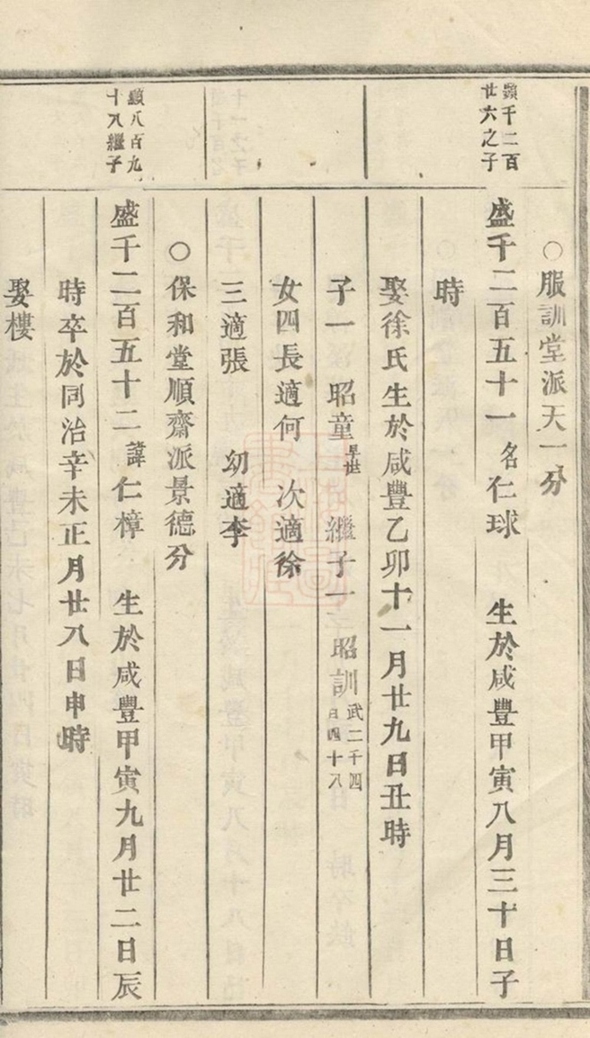 ○服訓堂派天一分
顯千二百
廿六之子
盛千二百五十一 名仁球 生於咸豐甲寅八月三十日子
時
娶徐氏生於咸豐乙卯十一月廿九日丑時
子一 昭童早世 繼子一 昭訓武二千四百四十八
女四長適何 次適徐
三適張 幼適李
○保和堂順齋派景德分
顯八百九
十八繼子
盛千二百五十二 諱仁樟 生於咸豐甲寅九月廿二日辰
時卒於同治辛未正月廿八日申時
娶樓